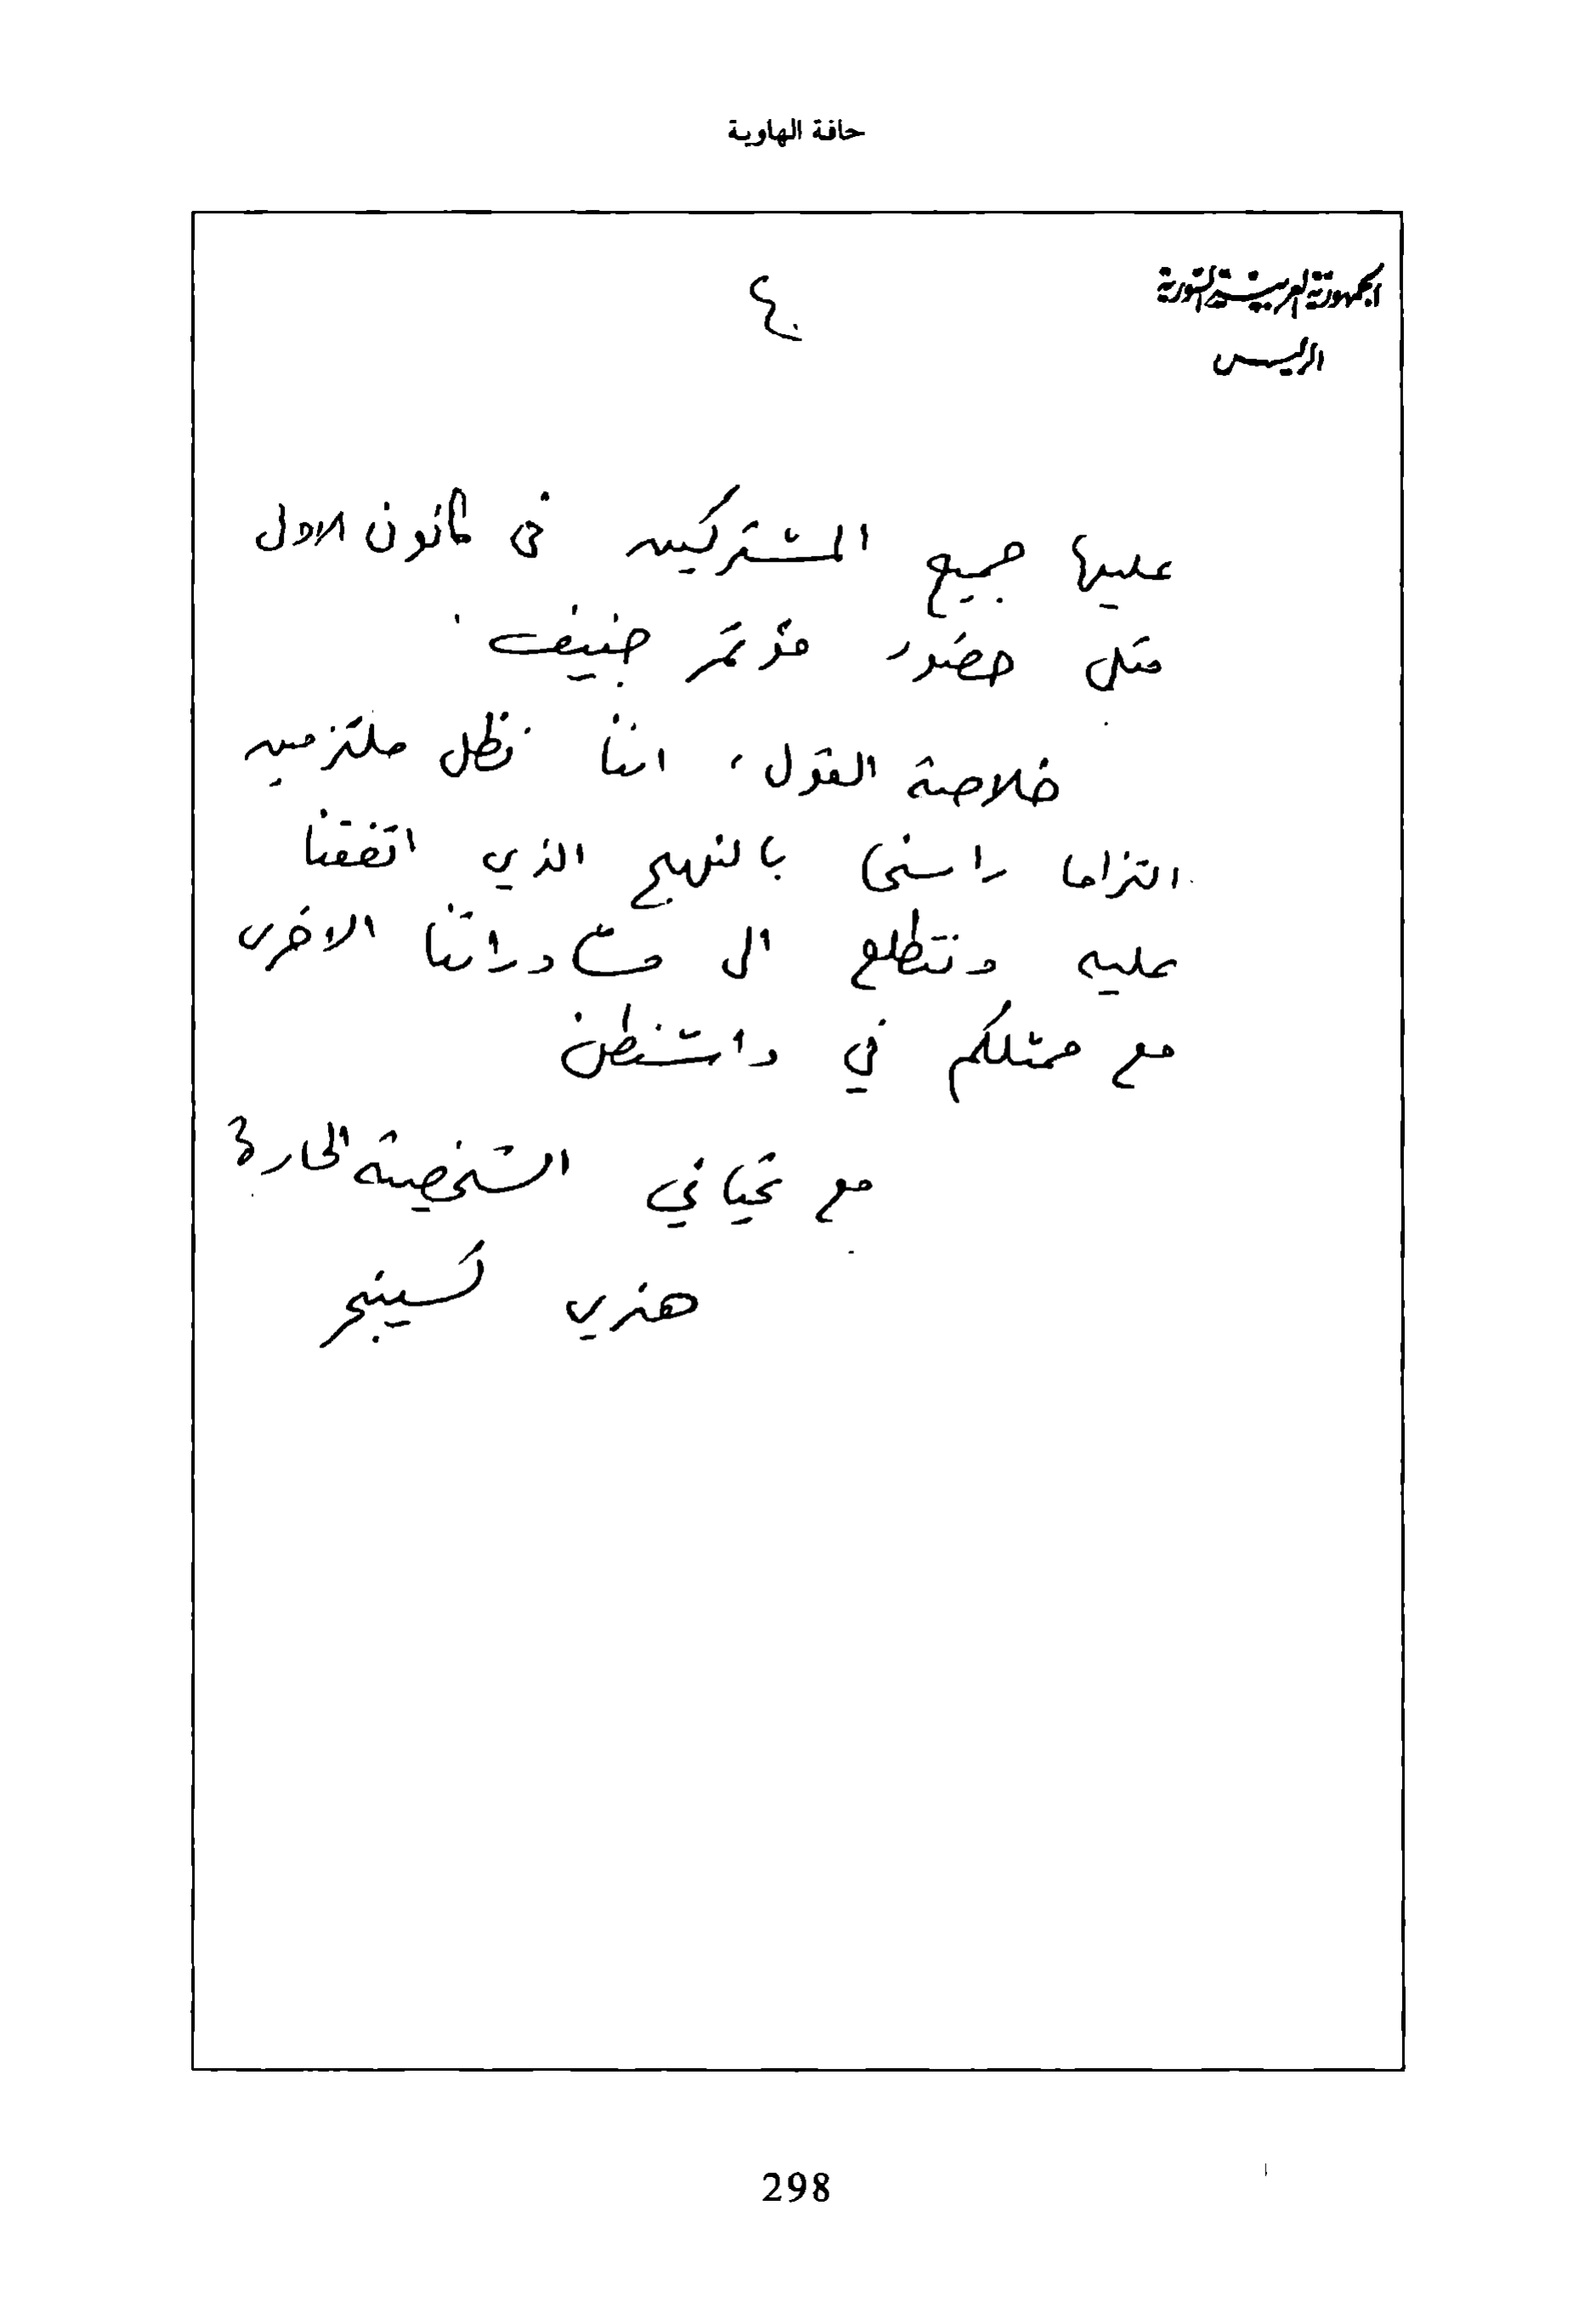 حافة الهاوية
الجمهورية العربية السورية
الرئيس
٤
عليها جميع المشتركين في كانون الاول
مثل حضور مؤتمر جنيف .
خلاصة القول ، اننا نظل ملتزمين
التزاما راسخا بالنهج الذي اتفقنا
عليه ونتطلع الى مشاوراتنا الاخرى
مع ممثلكم في واشنطن
مع تحياتي الشخصية الحارة
هنري كسينجر
298